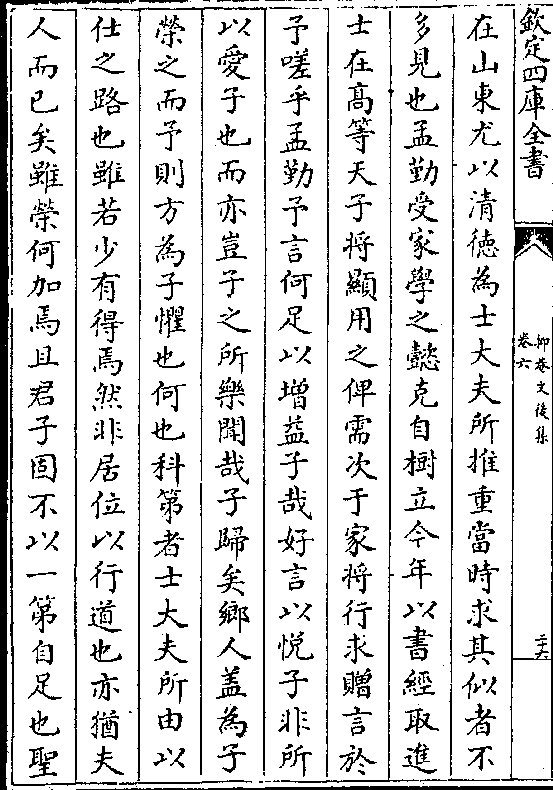 欽定四庫全書
抑菴文後集
卷六
二十六
在山東尤以清德為士大夫所推重當時求其似者不
多見也孟勤受家學之懿克自樹立今年以書經取進
士在髙等天子将顯用之俾需次于家将行求贈言於
予嗟乎孟勤予言何足以增益子哉好言以悦子非所
以愛子也而亦豈子之所樂聞哉子歸矣鄉人盖為子
榮之而予則方為子懼也何也科第者士大夫所由以
仕之路也雖若少有得焉然非居位以行道也亦猶夫
人而已矣雖榮何加焉且君子固不以一第自足也聖